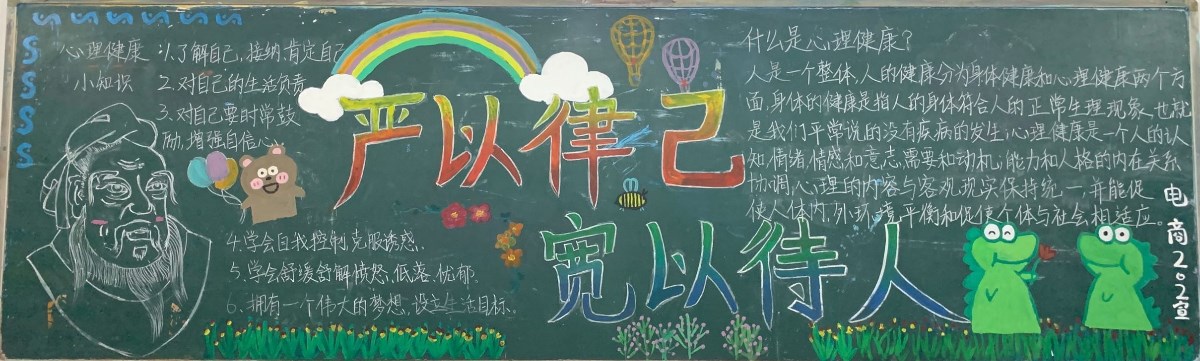 心理健康
小知识
1.了解自己,接纳,肯定自己
2.对自己的生活负责
3.对自己要时常鼓
励,增强自信心
4.学会自我控制,克服诱惑.
5.学会舒缓舒解愤怒,低落.忧郁.
6.拥有一个伟大的梦想.设立生活目标.
严以律己
宽以待人
什么是心理健康?
人是一个整体,人的健康分为身体健康和心理健康两个方
面,身体的健康是指人的身体符合人的正常生理现象,也就
是我们平常说的没有疾病的发生,心理健康是一个人的认
知,情绪,情感和意志,需要和动机,能力和人格的内在关系
协调,心理的内容与客观现实保持统一,并能促
使人体内,外环境平衡和促使个体与社会相适应。
电商202